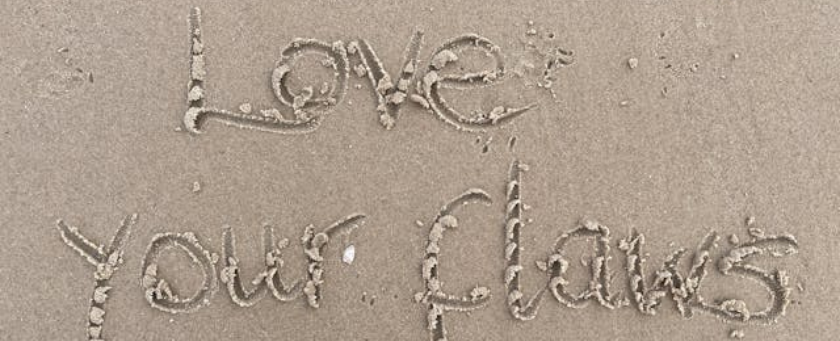 Love
your flaws